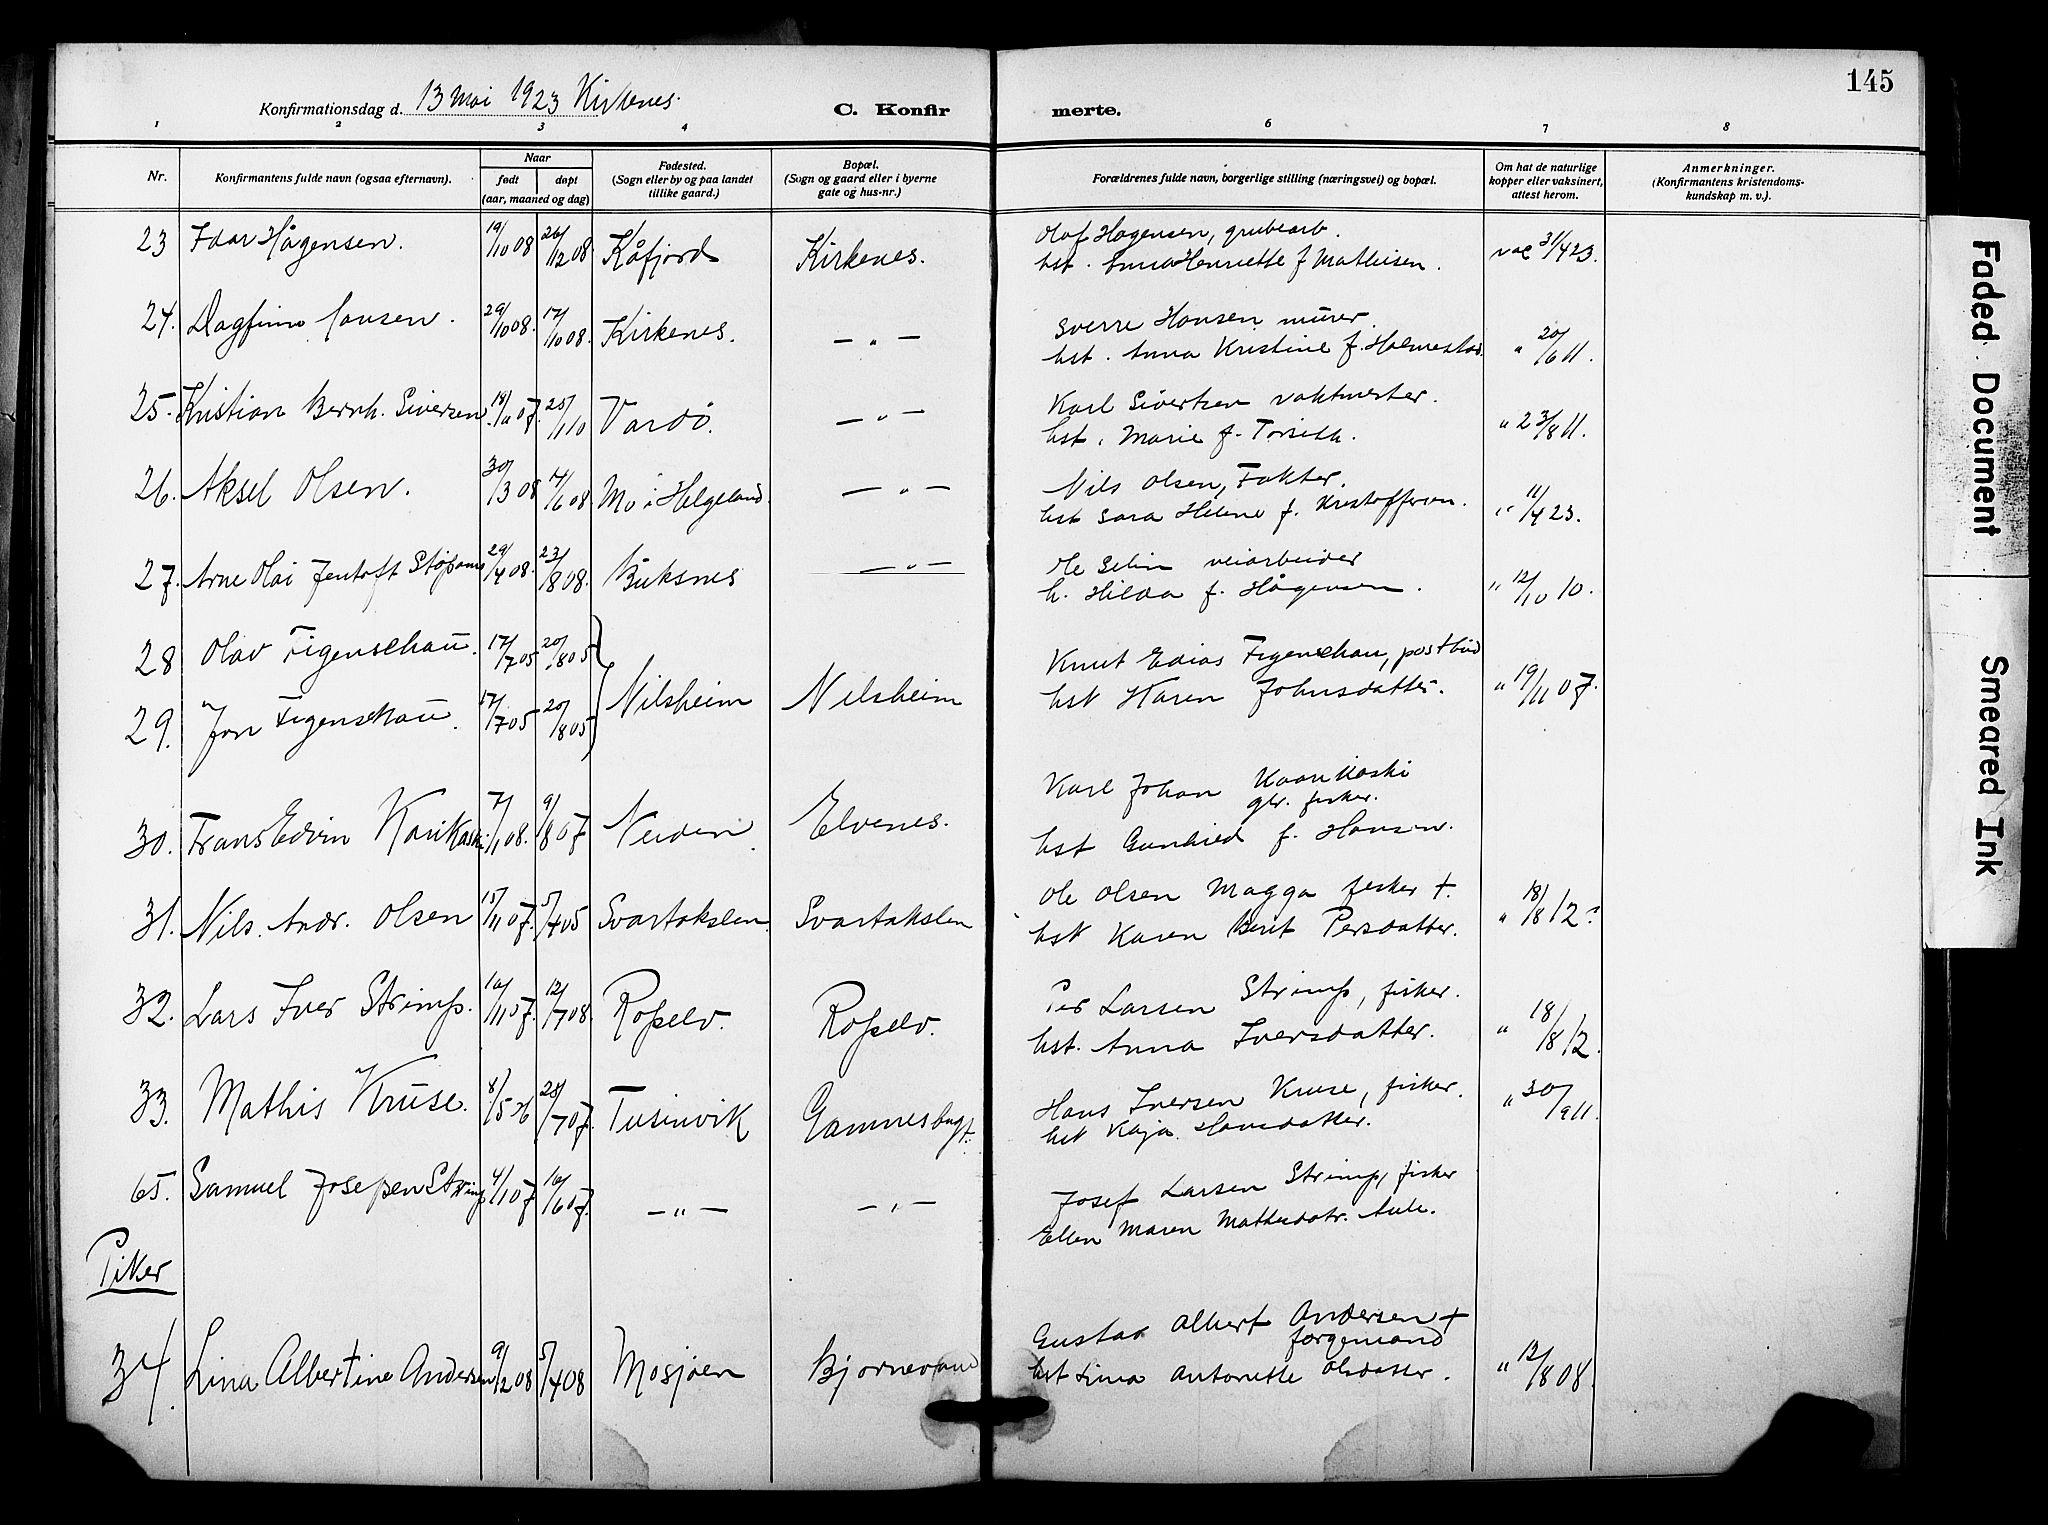 145
Konfirmationsdag d. 13 Mai 1923 Kirkenes.
C. Konfirmerte.
1 2 3 4 6 7 8
Nr.
Konfirmantens fulde navn (ogsaa efternavn).
Naar
født døpt
(aar, maaned og dag)
Fødested.
(Sogn eller by og paa landet
tillike gaard.)
Bopæl.
(Sogn og gaard eller i byerne
gate og hus-nr.)
Forældrenes fulde navn, borgerlige stilling (næringsvei) og bopæl.
Om hat de naturlige
kopper eller vaksinert,
attest herom.
Anmerkninger.
(Konfirmantens kristendoms-
kundskap m. v.).
23 Idar Hågensen. 19/10 08 26/12 08 Kåfjord Kirkenes. Olaf Hagensen, grubearb. vac 31/4 23.
hst. Anna Henriette f Mathisen.
24. Dagfinn Hansen. 29/10 08. 17/10 08. Kirkenes. — " — Sverre Hansen murer. " 20/6 11.
hst. Anna Kristine f. Holmestad.
25. Kristian Bernh. Siversen 18/11 07. 20/1 10 Vardö. — " — Karl Sivertsen vaktmester. " 23/8 11.
hst. Marie f. Torseth.
26. Aksel Olsen. 30/3 08 4/6 08 Mo i Helgeland. — " — Nils Olsen, Fakter. " 11/4 23.
hst Sara Helene f. Kristoffersen.
27. Arne Olai Jentoft 29/4 08. 23/8 08. Buksnes — " — Ole Selin veiarbeider " 12/10 10.
h. Hilda f. Hågensen.
28 Olav Figenschau. 17/7 05 20/8 05 Nilsheim Nilsheim Knut Edias Figenschau, postbud " 19/11 07.
hst Karen Johnsdatter.
29. Jon Figenschau. 17/7 05 20/8 05
30. Frans Edvin 7/1 08. 9/8 07 Neiden Elvenes. Karl Johan
gbr. fisker.
hst f. Hansen.
31. Nils Andr. Olsen 15/11 07. 5/4 05 Svartakslen. Svartakslen Ole Olsen Magga fisker †. " 18/8 12.
hst Karen Berit Persdatter.
32. Lars Iver Strimp. 10/11 07. 12/7 08. Ropelv. Ropelv. Per Larsen Strimp, fisker. " 18/8 12.
hst. Anna Iversdatter.
33. Mathis Kruse. 8/5 28/7 07. Tusinvik Gamnesbugt. Hans Iversen Kruse, fisker. " 30/9 11.
hst Kaja Hansdatter.
65. Samuel Josepsen Strimp 4/1 07 16/6 07. — " — — " — Josef Larsen Strimp, fisker
Ellen Maren
Piker
34. Lina Albertine Andersen 9/2 08 5/4 08 Mosjøen Bjørnevand Gustav Albert Andersen † " 12/8 08.
formand
hst Lina Antonette Olsdatter.
Faded Document
Smeared Ink